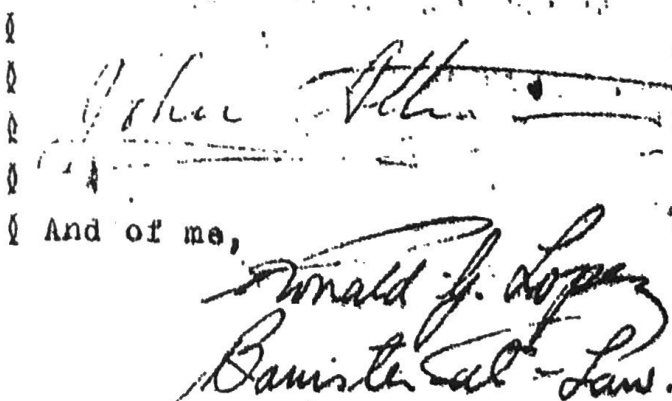 John
And of me,
Ronald J. Lopez
Barrister-at-Law.